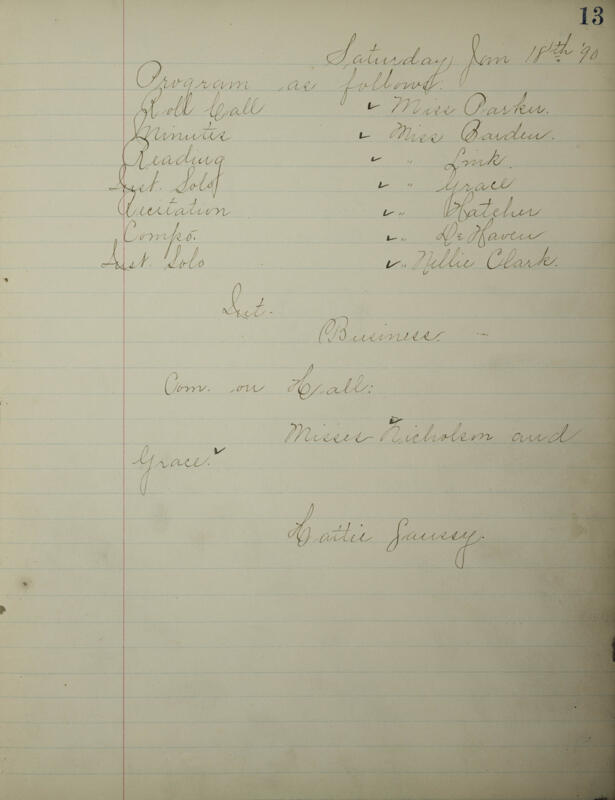 13
Saturday, Jan 18th '90
Program as follows.
Roll Call ✓ Miss Parker.
Minutes ✓ Miss Barden.
Reading ✓ " Link.
Inst. Solo ✓ " Grace
Recitation ✓ " Hatcher
Compo. ✓ " De Haven
Inst. Solo ✓ " Nellie Clark.
Int.
Business. –
Com. on Hall:
Misses Nicholson and
Grace. ✓
Hattie